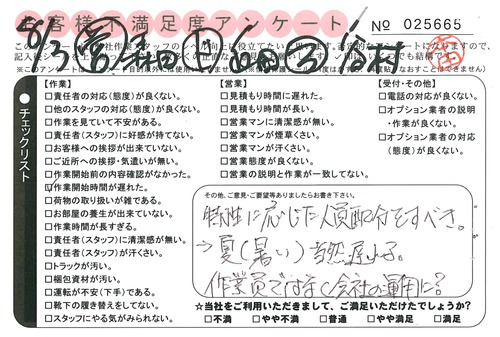 お客様不満足度アンケート
No 025665
8/3
【作業】
□責任者の対応(態度)が良くない。
□他のスタッフの対応(態度)が良くない。
□作業を見ていて不安がある。
□責任者(スタッフ)に好感が持てない。
□お客様への挨拶が出来ていない。
□ご近所への挨拶・気遣いが無い。
□作業開始前の内容確認がなかった。
☑作業開始時間が遅れた。
□荷物の取り扱いが雑である。
□お部屋の養生が出来ていない。
□作業時間が長すぎる。
□責任者(スタッフ)に清潔感が無い。
□責任者(スタッフ)が汗くさい。
□トラックが汚い。
□梱包資材が汚い。
□運転が不安(下手)である。
□靴下の履き替えをしてない。
□スタッフにやる気がみられない。
【営業】
□見積もり時間に遅れた。
□見積もり時間が長い。
□営業マンに清潔感が無い。
□営業マンが煙草くさい。
□営業マンが汗くさい。
□営業態度が良くない。
□営業の説明と作業が一致してない。
【受付・その他】
□電話の対応が良くない。
□オプション業者の説明
・作業が良くない。
□オプション業者の対応
(態度)が良くない。
チェックリスト
その他、ご意見・ご要望等ありましたらお書き下さい。
特性に応じた人員配分をすべき。
→夏(暑い)当然遅れる。
作業員ではなく会社の運用に?
☆当社をご利用いただきまして、ご満足いただけたでしょうか?
□不満 □やや不満 □普通 □やや満足 □満足